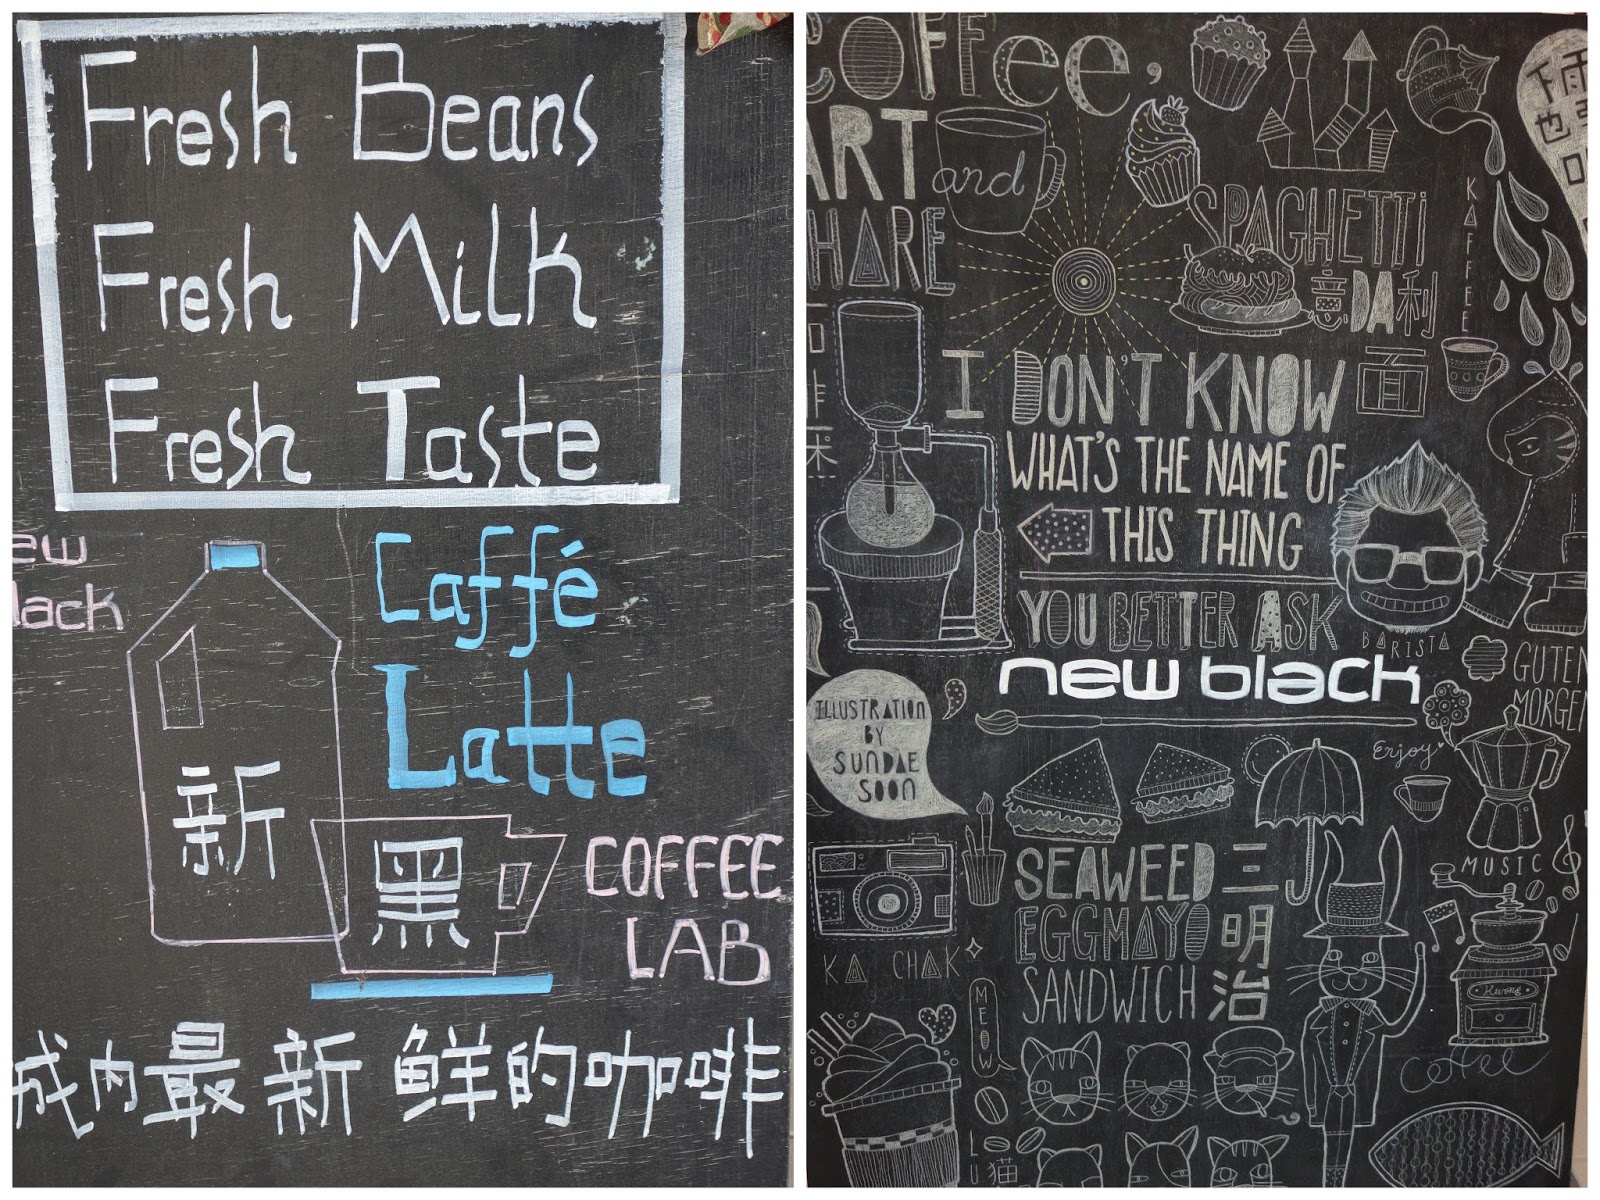 Fresh Beans
Fresh Milk
Fresh Taste
Caffé
Latte
新
黑
COFFEE
LAB
城内最新鲜的咖啡
Coffee,
ART and
SHARE
SPAGHETTI
意DA利
面
KAFFEE
I DON'T KNOW
WHAT'S THE NAME OF
THIS THING
YOU BETTER ASK
BARISTA
new black
GUTEN
MORGEN
ILLUSTRATION
BY
SUNDAE
SOON
Enjoy
MUSIC
SEAWEED 三
EGGMAYO 明
SANDWICH 治
KA CHAK
MEOW
Kwong
coffee
LU
猫